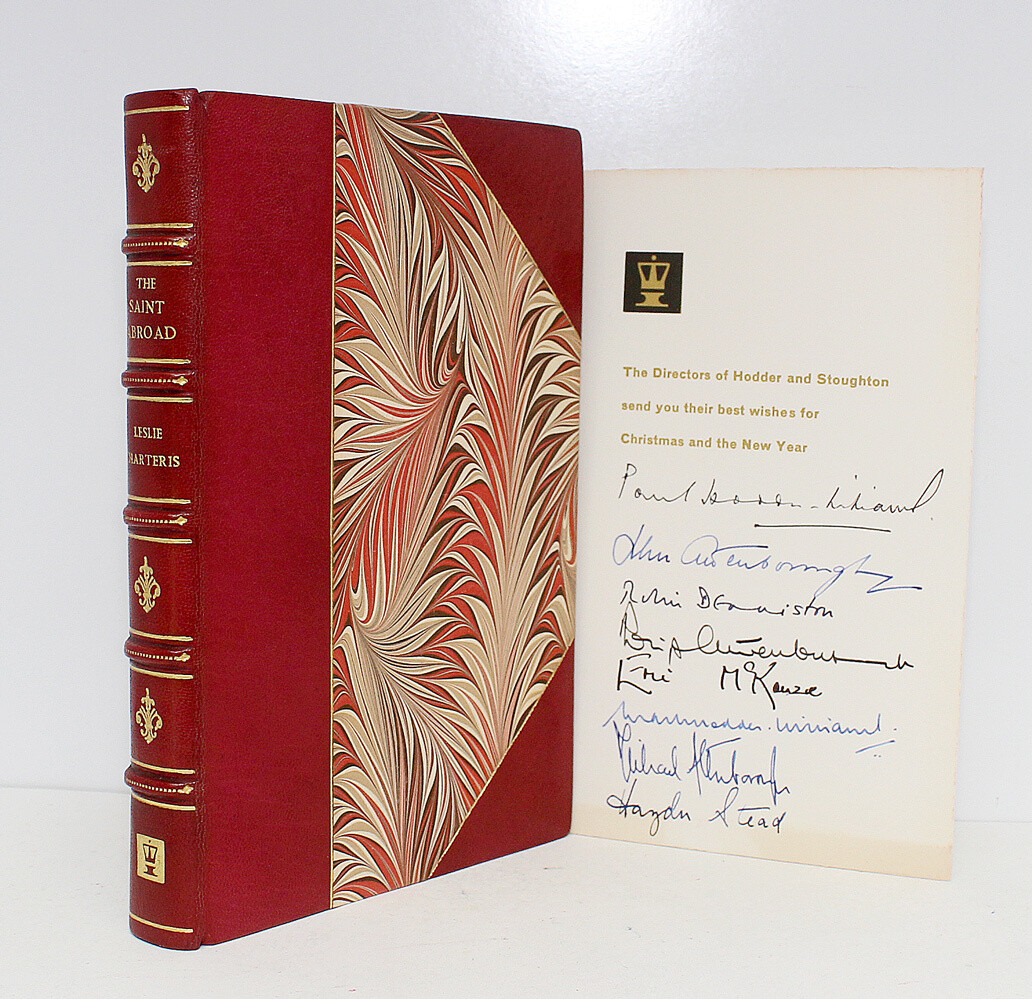 THE
SAINT
ABROAD
LESLIE
CHARTERIS
The Directors of Hodder and Stoughton
send you their best wishes for
Christmas and the New Year
Paul Hodder-Williams.
John Attenborough
Robin Denniston
Philip Attenborough
Eric McKenzie
Mark Hodder-Williams.
Michael Attenborough
Haydn Stead